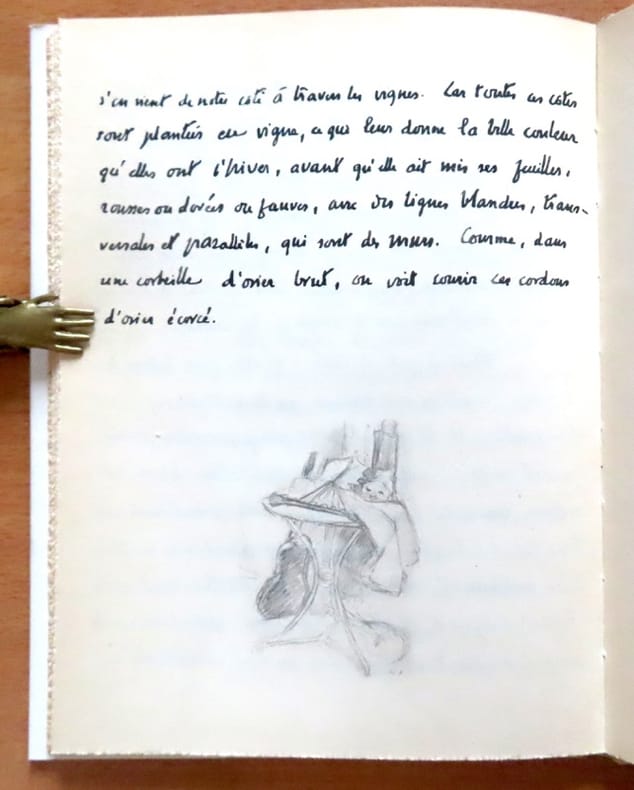 s'en vient de notre côté à travers les vignes. Car toutes ces côtes
sont plantées en vigne, ce qui leur donne la belle couleur
qu'elles ont l'hiver, avant qu'elle ait mis ses feuilles,
rousses ou dorées ou fauves, avec des lignes blondes, trans-
versales et parallèles, qui sont des murs. Comme, dans
une corbeille d'osier brut, on voit courir ces cordons
d'osier écorcé.